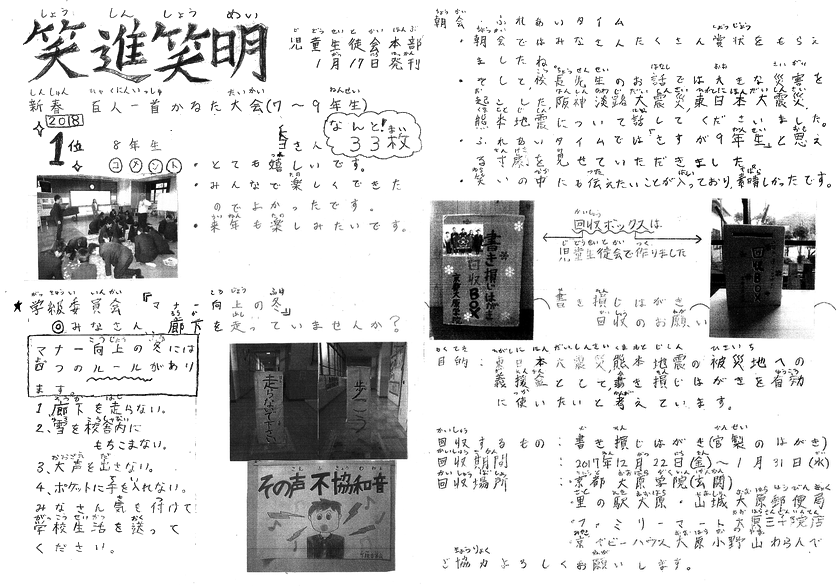 笑進笑明
児童生徒会本部
1月17日発刊
新春 百人一首かるた大会(7～9年生)
2018
1位 8年生 さん
なんと!
33枚
コメント
・とても嬉しいです。
・みんなで楽しくできた
のでよかったです。
・来年も楽しみたいです。
★学級委員会『マナー向上の冬』
◎みなさん、廊下を走っていませんか?
マナー向上の冬には
4つのルールがあり
ます。
1、廊下を走らない。
2、雪を校舎内に
もちこまない。
3、大声を出さない。
4、ポケットに手を入れない。
みなさん気を付けて
学校生活を送って
ください。
走らないで下さい
歩こう
その声 不協和音
朝会・ふれあいタイム
・朝会ではみなさんたくさん賞状をもらえ
ましたね。
・そして校長先生のお話では大きな災害を
起こした、阪神淡路大震災、東日本大震災、
熊本地震について話してくださいました。
・ふれあいタイムでは『さすが9年生』と思え
る寸劇を見せていただきました。
・笑いの中にも伝えたいことが入っており、素晴しかったです。
書き損じはがき
回収BOX
京都大原学院
回収ボックスは
児童生徒会で作りました
回収BOX
書き損じはがき
回収のお願い
目的:東日本大震災、熊本地震の被災地への
義援金として書き損じはがきを有効
に使いたいと考えています。
回収するもの:書き損じはがき(官製のはがき)
回収期間:2017年12月22日(金)～1月31日(水)
回収場所:京都大原学院(玄関)
・里の駅大原・山城大原郵便局
・ファミリーマート大原三千院店
・京都ベビーハウス大原小野山わらんで
ご協力よろしくお願いします。